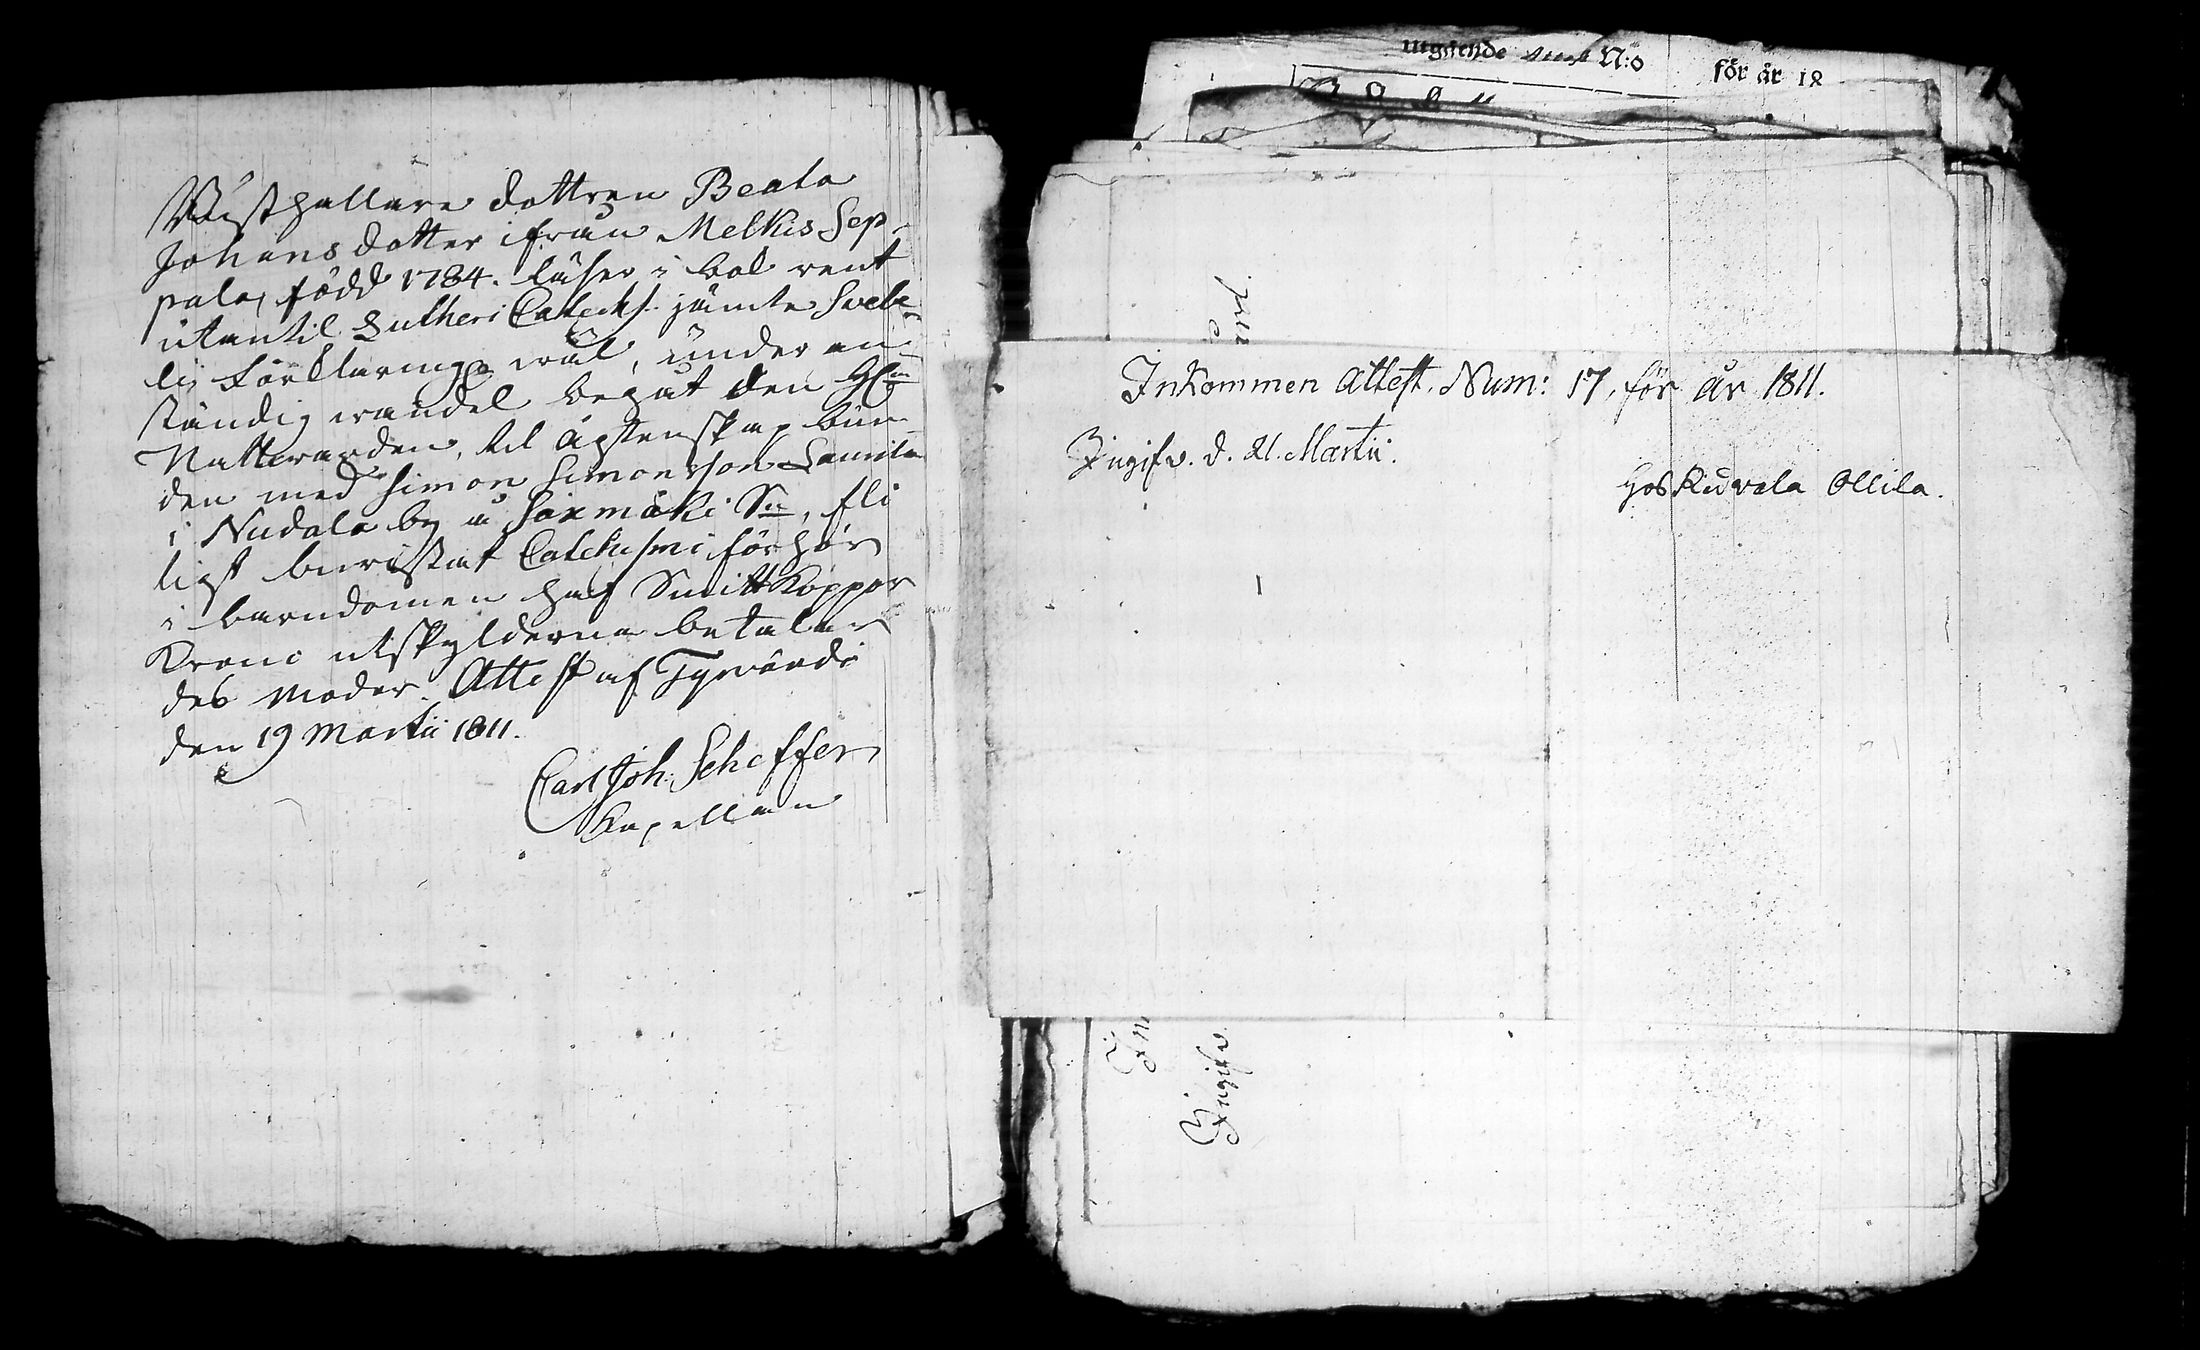 Rusthållare dottren Beata
Johansdotter ifrån Melkis Sep-
pala, född 1784. läser i bok rent
utantil Lutheri Catech. jämte Svebe-
lii Förklaring wäl, under an-
ständig wandel begåt den H.
Nattwarden, til ägtenskap bun-
den med Simon Simonsson Laurila
i Nudala by å Saxmäki Sn, fli
tigt bewistat Catechismi förhör
i barndomen haft Smittkoppor
Krono utskylderna betalar
des Moder. Attest af Tyrvändö
den 19 Martii 1811.
Carl Joh. Scheffer
Kapellan
utgående N:o för år 18
Inkommen Attest. Num: 17, för år 1811.
Ingifv. d. 21. Martii.
hos Kudvala Ollila.
Ingifv.